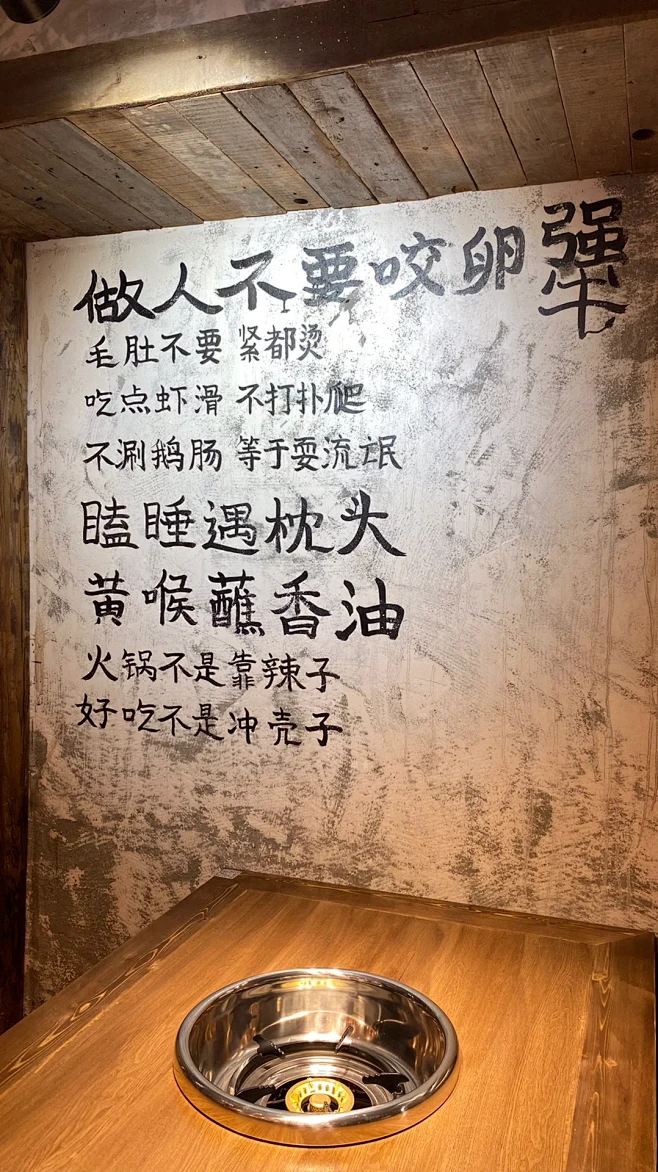 做人不要咬卵犟
毛肚不要 紧都烫
吃点虾滑 不打扑爬
不涮鹅肠 等于耍流氓
瞌睡遇枕头
黄喉蘸香油
火锅不是靠辣子
好吃不是冲壳子